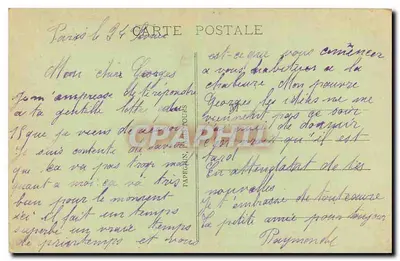 CARTE POSTALE
Paris le 24
Mon cher Georges
Je m'empresse de répondre
a ta gentille lettre du
18 que je viens de
je suis contente de savoir
que ca va pas trop mal
quant a moi ca va très
bien pour le moment
ici il fait un temps
superbe un vraie temps
de printemps et vous
est-ce que vous comencer
a vous habituer a la
chaleure Mon pauvre
Georges les idées ne me
viennent pas ce soir
qu'il est
tard
En attendant de tes
nouvelles
je t'embrasse de tout cœur
ta petite amie pour toujour
Raymonde
CPAPHIL